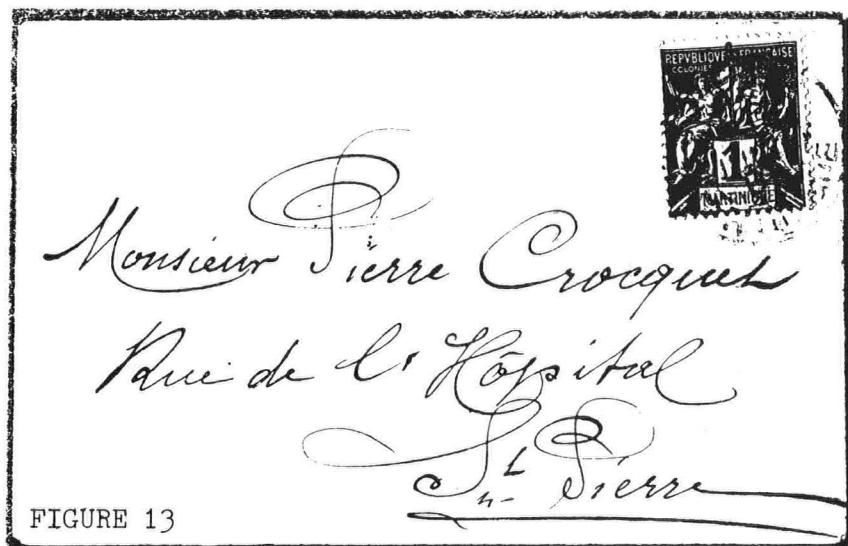 REPVBLIQVE FRANÇAISE
COLONIES
1
MARTINIQUE
Monsieur Pierre Crocquet
Rue de l'Hôpital
St Pierre
FIGURE 13